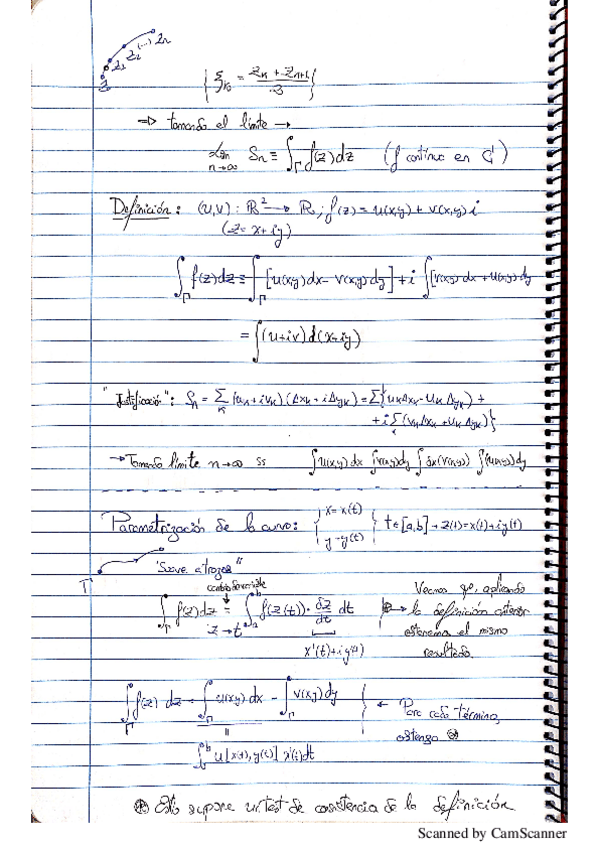 z₁ z₂ (...) zₙ
{ ξₖ = (zₙ + zₙ₊₁)/3 }
⇒ tomando el límite →
lim n→∞ Sₙ ≡ ∫_Γ f(z)dz (f continua en C¹)
Definición: (u,v): ℝ² → ℝ; f(z) = u(x,y) + v(x,y) i
(z = x + iy)
∫_Γ f(z)dz ≡ ∫_Γ [u(x,y)dx - v(x,y)dy] + i ∫ [v(x,y)dx + u(x,y)dy
= ∫(u+iv)d(x+iy)
"Justificación": Sₙ = Σ_k (uₖ + ivₖ)(Δxₖ + iΔyₖ) = Σ{uₖΔxₖ - vₖΔyₖ) +
+ i Σ (vₖΔxₖ + uₖΔyₖ)}
→ Tomando límite n→∞ ∫u(x,y)dx ∫v(x,y)dy ∫dx(v(x,y)) ∫(u(x,y))dy
Parametrización de la curva: { x = x(t)
y = y(t) } t ∈ [a,b] → z(t) = x(t) + iy(t)
"Suave a trozos"
Γ
cambio de variable
∫_Γ f(z)dz = ∫_a^b f(z(t)) · dz/dt dt
z → t
x'(t) + iy'(t)
Veamos que, aplicando
→ la definición anterior
obtenemos el mismo
resultado.
∫_Γ f(z) dz = ∫_Γ u(x,y) dx - ∫_Γ v(x,y)dy
← Para cada término,
obtengo ⊛
∫ᵇ u[x(t), y(t)] x'(t)dt
⊛ Esto supone un test de consistencia de la definición
Scanned by CamScanner